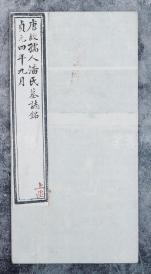 唐故孺人潘氏墓誌銘
貞元四年九月